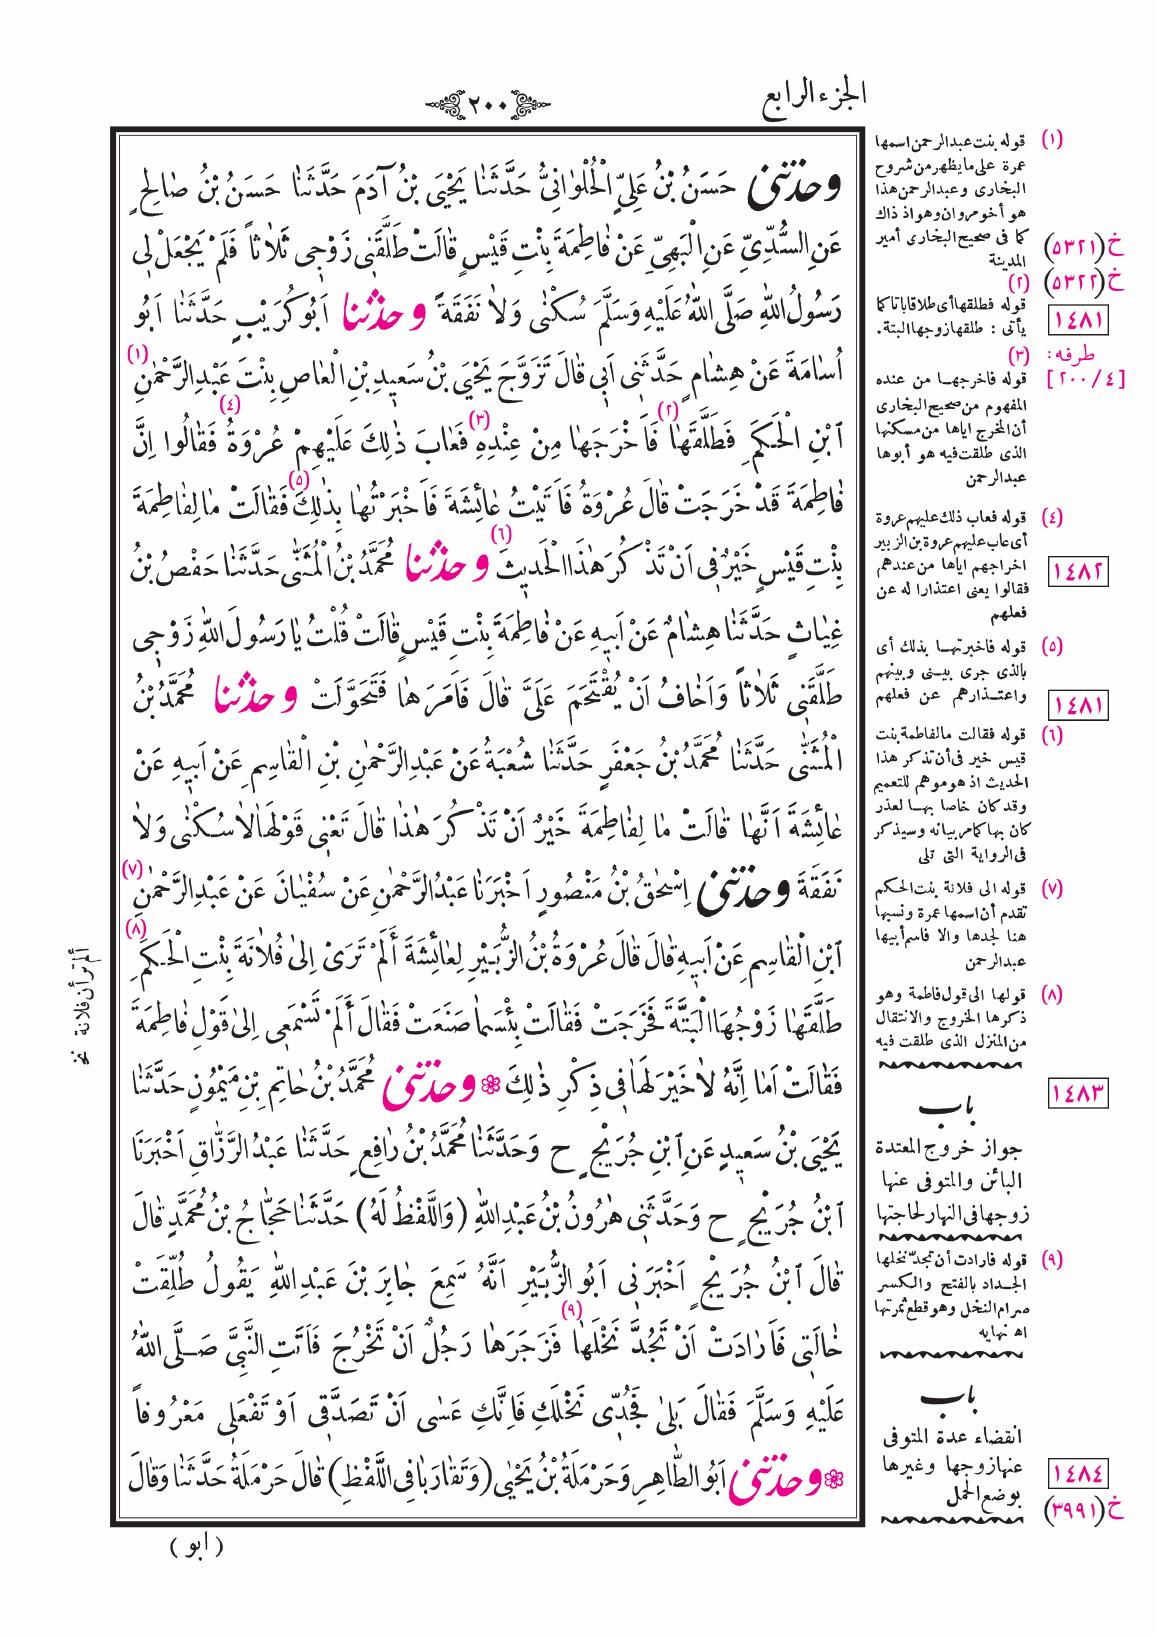 الجزء الرابع
٢٠٠
وحدثني حَسَنُ بْنُ عَلِيٍّ الْحُلْوَانِيُّ حَدَّثَنَا يَحْيَى بْنُ آدَمَ حَدَّثَنَا حَسَنُ بْنُ صَالِحٍ
عَنِ السُّدِّيِّ عَنِ الْبَهِيِّ عَنْ فَاطِمَةَ بِنْتِ قَيْسٍ قَالَتْ طَلَّقَنِي زَوْجِي ثَلَاثاً فَلَمْ يَجْعَلْ لِي
رَسُولُ اللَّهِ صَلَّى اللَّهُ عَلَيْهِ وَسَلَّمَ سُكْنَى وَلَا نَفَقَةً وحدثنا اَبُو كُرَيْبٍ حَدَّثَنَا اَبُو
اُسَامَةَ عَنْ هِشَامٍ حَدَّثَنِي اَبِي قَالَ تَزَوَّجَ يَحْيَى بْنُ سَعِيدِ بْنِ الْعَاصِ بِنْتَ عَبْدِ الرَّحْمٰنِ (١)
ابْنِ الْحَكَمِ فَطَلَّقَهَا (٢) فَاَخْرَجَهَا مِنْ عِنْدِهِ (٣) فَعَابَ ذٰلِكَ عَلَيْهِمْ عُرْوَةُ (٤) فَقَالُوا اِنَّ
فَاطِمَةَ قَدْ خَرَجَتْ قَالَ عُرْوَةُ فَاَتَيْتُ عَائِشَةَ فَاَخْبَرْتُهَا بِذٰلِكَ (٥) فَقَالَتْ مَا لِفَاطِمَةَ
بِنْتِ قَيْسٍ خَيْرٌ فِي اَنْ تَذْكُرَ هٰذَا الْحَدِيثَ (٦) وحدثنا مُحَمَّدُ بْنُ الْمُثَنَّى حَدَّثَنَا حَفْصُ بْنُ
غِيَاثٍ حَدَّثَنَا هِشَامٌ عَنْ اَبِيهِ عَنْ فَاطِمَةَ بِنْتِ قَيْسٍ قَالَتْ قُلْتُ يَا رَسُولَ اللَّهِ زَوْجِي
طَلَّقَنِي ثَلَاثاً وَاَخَافُ اَنْ يُقْتَحَمَ عَلَيَّ قَالَ فَاَمَرَهَا فَتَحَوَّلَتْ وحدثنا مُحَمَّدُ بْنُ
الْمُثَنَّى حَدَّثَنَا مُحَمَّدُ بْنُ جَعْفَرٍ حَدَّثَنَا شُعْبَةُ عَنْ عَبْدِ الرَّحْمٰنِ بْنِ الْقَاسِمِ عَنْ اَبِيهِ عَنْ
عَائِشَةَ اَنَّهَا قَالَتْ مَا لِفَاطِمَةَ خَيْرٌ اَنْ تَذْكُرَ هٰذَا قَالَ تَعْنِي قَوْلَهَا لَا سُكْنَى وَلَا
نَفَقَةَ وحدثني اِسْحٰقُ بْنُ مَنْصُورٍ اَخْبَرَنَا عَبْدُ الرَّحْمٰنِ عَنْ سُفْيَانَ عَنْ عَبْدِ الرَّحْمٰنِ
ابْنِ الْقَاسِمِ عَنْ اَبِيهِ قَالَ قَالَ عُرْوَةُ بْنُ الزُّبَيْرِ لِعَائِشَةَ أَلَمْ تَرَىْ اِلَى فُلَانَةَ بِنْتِ الْحَكَمِ (٧)
طَلَّقَهَا زَوْجُهَا الْبَتَّةَ فَخَرَجَتْ فَقَالَتْ بِئْسَمَا صَنَعَتْ فَقَالَ أَلَمْ تَسْمَعِي اِلَى قَوْلِ فَاطِمَةَ (٨)
فَقَالَتْ اَمَا اِنَّهُ لَا خَيْرَ لَهَا فِي ذِكْرِ ذٰلِكَ ۞ وحدثني مُحَمَّدُ بْنُ حَاتِمِ بْنِ مَيْمُونٍ حَدَّثَنَا
يَحْيَى بْنُ سَعِيدٍ عَنِ ابْنِ جُرَيْجٍ ح وَحَدَّثَنَا مُحَمَّدُ بْنُ رَافِعٍ حَدَّثَنَا عَبْدُ الرَّزَّاقِ اَخْبَرَنَا
ابْنُ جُرَيْجٍ ح وَحَدَّثَنِي هٰرُونُ بْنُ عَبْدِ اللَّهِ (وَاللَّفْظُ لَهُ) حَدَّثَنَا حَجَّاجُ بْنُ مُحَمَّدٍ قَالَ
قَالَ ابْنُ جُرَيْجٍ اَخْبَرَنِي اَبُو الزُّبَيْرِ اَنَّهُ سَمِعَ جَابِرَ بْنَ عَبْدِ اللَّهِ يَقُولُ طُلِّقَتْ
خَالَتِي فَاَرَادَتْ اَنْ تَجُدَّ نَخْلَهَا (٩) فَزَجَرَهَا رَجُلٌ اَنْ تَخْرُجَ فَاَتَتِ النَّبِيَّ صَلَّى اللَّهُ
عَلَيْهِ وَسَلَّمَ فَقَالَ بَلَى فَجُدِّي نَخْلَكِ فَاِنَّكِ عَسَى اَنْ تَصَدَّقِي اَوْ تَفْعَلِي مَعْرُوفاً
۞ وحدثني اَبُو الطَّاهِرِ وَحَرْمَلَةُ بْنُ يَحْيٰى (وَتَقَارَبَا فِي اللَّفْظِ) قَالَ حَرْمَلَةُ حَدَّثَنَا وَقَالَ
( ابو )
(١) قوله بنت عبد الرحمن اسمها
عمرة على ما يظهر من شروح
البخارى وعبد الرحمن هذا
هو أخو مروان وهو اذ ذاك
كما فى صحيح البخارى أمير
المدينة
(٢)
قوله فطلقها أى طلاقا باتا كما
يأتى : طلقها زوجها البتة .
(٣)
قوله فاخرجها من عنده
المفهوم من صحيح البخارى
أن المخرج اياها من مسكنها
الذى طلقت فيه هو أبوها
عبد الرحمن
(٤) قوله فعاب ذلك عليهم عروة
أى عاب عليهم عروة بن الزبير
اخراجهم اياها من عندهم
فقالوا يعنى اعتذارا له عن
فعلهم
(٥) قوله فاخبرتها بذلك أى
بالذى جرى بينى وبينهم
واعتذارهم عن فعلهم
(٦) قوله فقالت ما لفاطمة بنت
قيس خير فى أن تذكر هذا
الحديث اذ هو موهم للتعميم
وقد كان خاصا بها لعذر
كان بها كما مر بيانه وسيذكر
فى الرواية التى تلى
(٧) قوله الى فلانة بنت الحكم
تقدم أن اسمها عمرة ونسبها
هنا لجدها والا فاسم أبيها
عبد الرحمن
(٨) قولها الى قول فاطمة وهو
ذكرها الخروج والانتقال
من المنزل الذى طلقت فيه
باب
جواز خروج المعتدة
البائن والمتوفى عنها
زوجها فى النهار لحاجتها
(٩) قوله فارادت أن تجدّ نخلها
الجداد بالفتح والكسر
صرام النخل وهو قطع ثمرتها
اه نهايه
باب
انقضاء عدة المتوفى
عنها زوجها وغيرها
بوضع الحمل
خ (٥٣٢١)
خ (٥٣٢٢)
١٤٨١
طرفه:
[٢٠٠/٤]
١٤٨٢
١٤٨١
١٤٨٣
١٤٨٤
خ (٣٩٩١)
ألم تر أن فلانة نخ